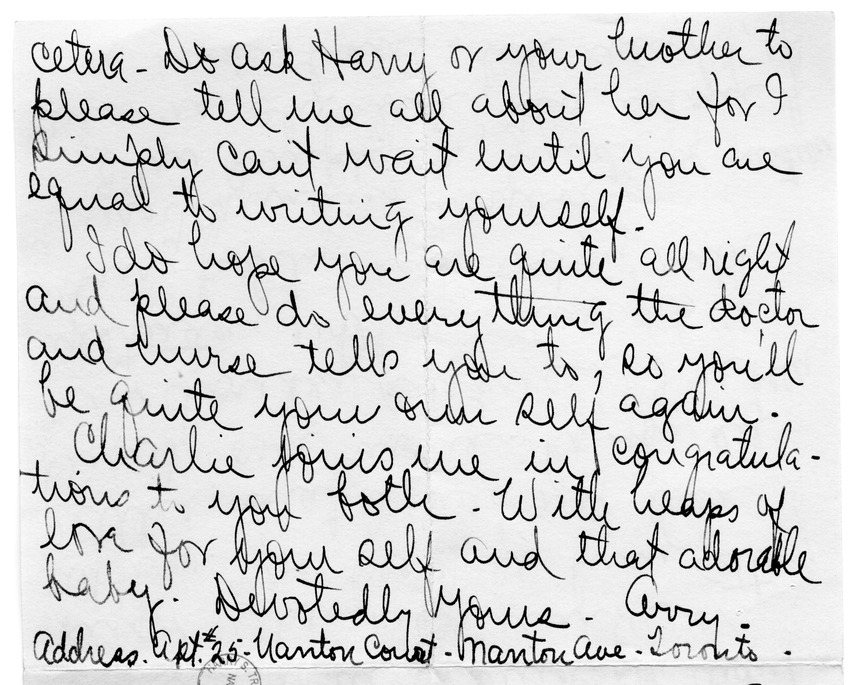 cetera - Do ask Harry or your Mother to
please tell me all about her for I
simply can't wait until you are
equal to writing yourself.
I do hope you are quite all right
and please do everything the doctor
and nurse tells you to, so you'll
be quite your own self again.
Charlie joins me in congratula-
tions to you both - With heaps of
love for your self and that adorable
baby. Devotedly yours -
Address. Apt. #25 - Nanton Court - Nanton Ave - Toronto -